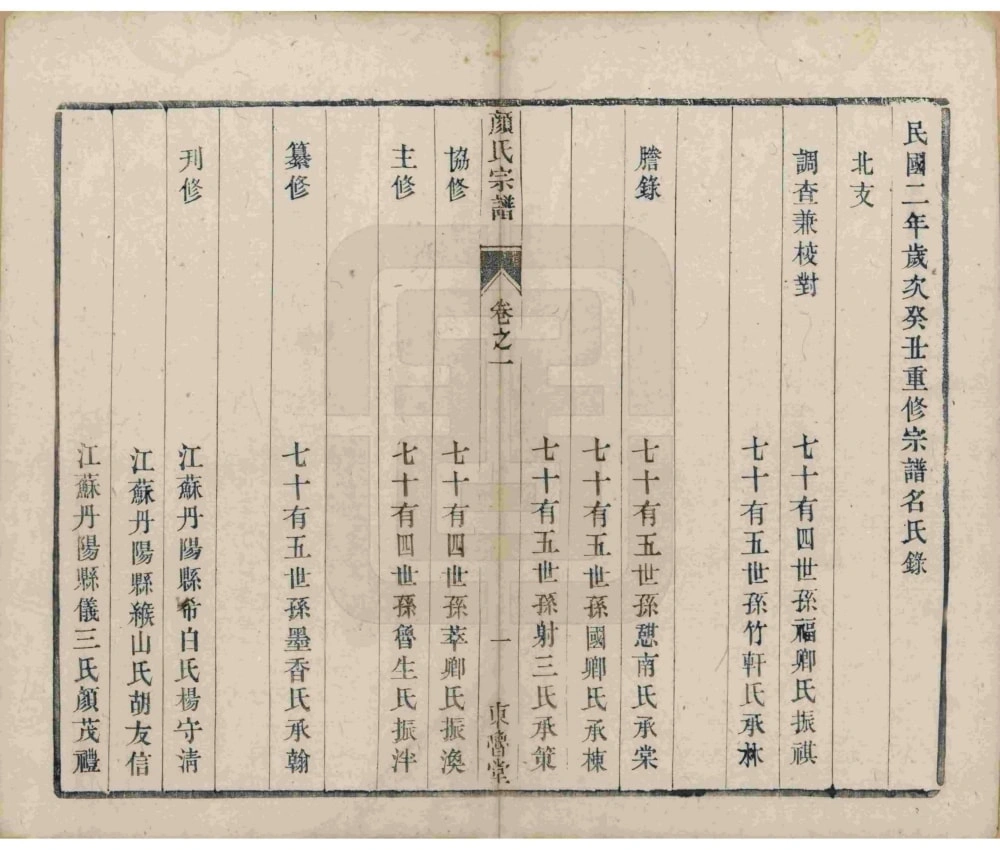 民國二年歲次癸丑重修宗譜名氏錄
北支
調查兼校對 七十有四世孫福卿氏振祺
七十有五世孫竹軒氏承林
謄錄 七十有五世孫憇南氏承棠
七十有五世孫國卿氏承棟
七十有五世孫射三氏承策
顏氏宗譜 卷之一 一 東魯堂
協修 七十有四世孫萃卿氏振渙
主修 七十有四世孫魯生氏振泮
纂修 七十有五世孫墨香氏承翰
刊修 江蘇丹陽縣希白氏楊守淸
江蘇丹陽縣緱山氏胡友信
江蘇丹陽縣儀三氏顏茂禮